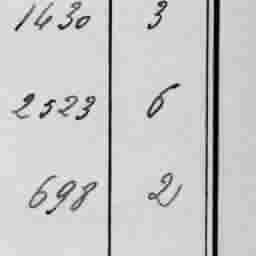 1430 3
2523 6
698 2